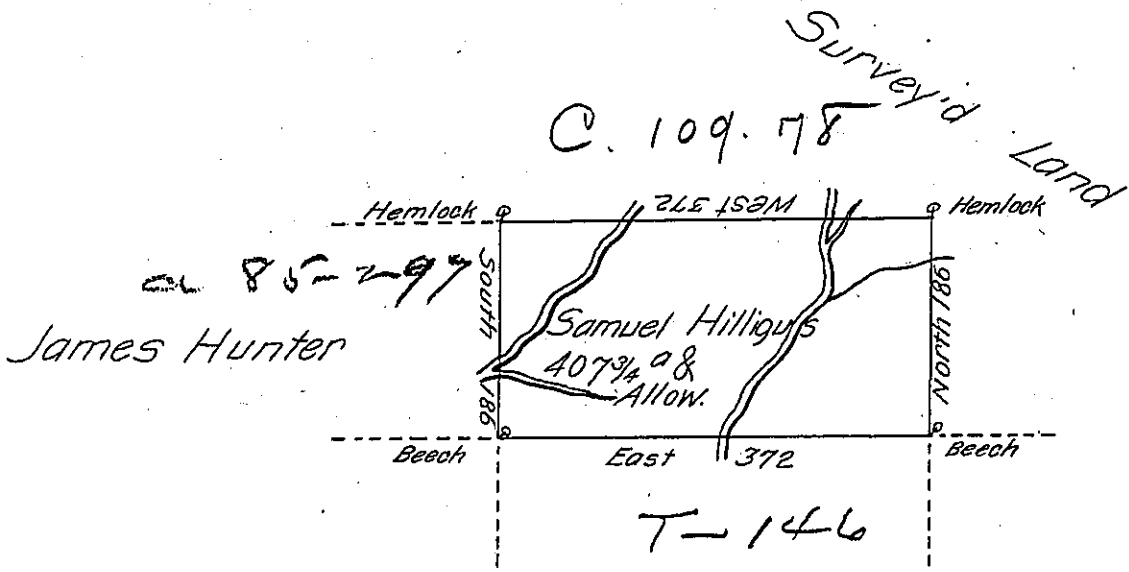 Survey'd Land
C. 109. 78
Hemlock
West 372
Hemlock
a 85-297
South 186
North 186
James Hunter
Samuel Hilligus
407¾ a &
Allow.
Beech
East 372
Beech
T-146